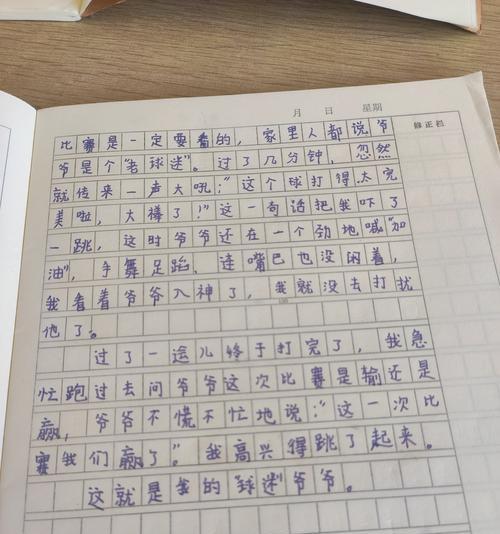 月 日 星期
修正栏
比赛是一定要看的，家里人都说爷
爷是个“老球迷”。过了几分钟，忽然
就传来一声大吼：“这个球打得太完
美啦，大棒了！”这一句话把我吓了
一跳，这时爷爷还在一个劲地喊“加
油”，手舞足蹈，连嘴巴也没闲着，
我看着爷爷入神了，我就没去打扰
他了。
过了一会儿终于打完了，我急
忙跑过去问爷爷这次比赛是输还是
赢，爷爷不慌不忙地说：“这一次比
赛我们赢了”。我高兴得跳了起来。
这就是我的“球迷”爷爷。